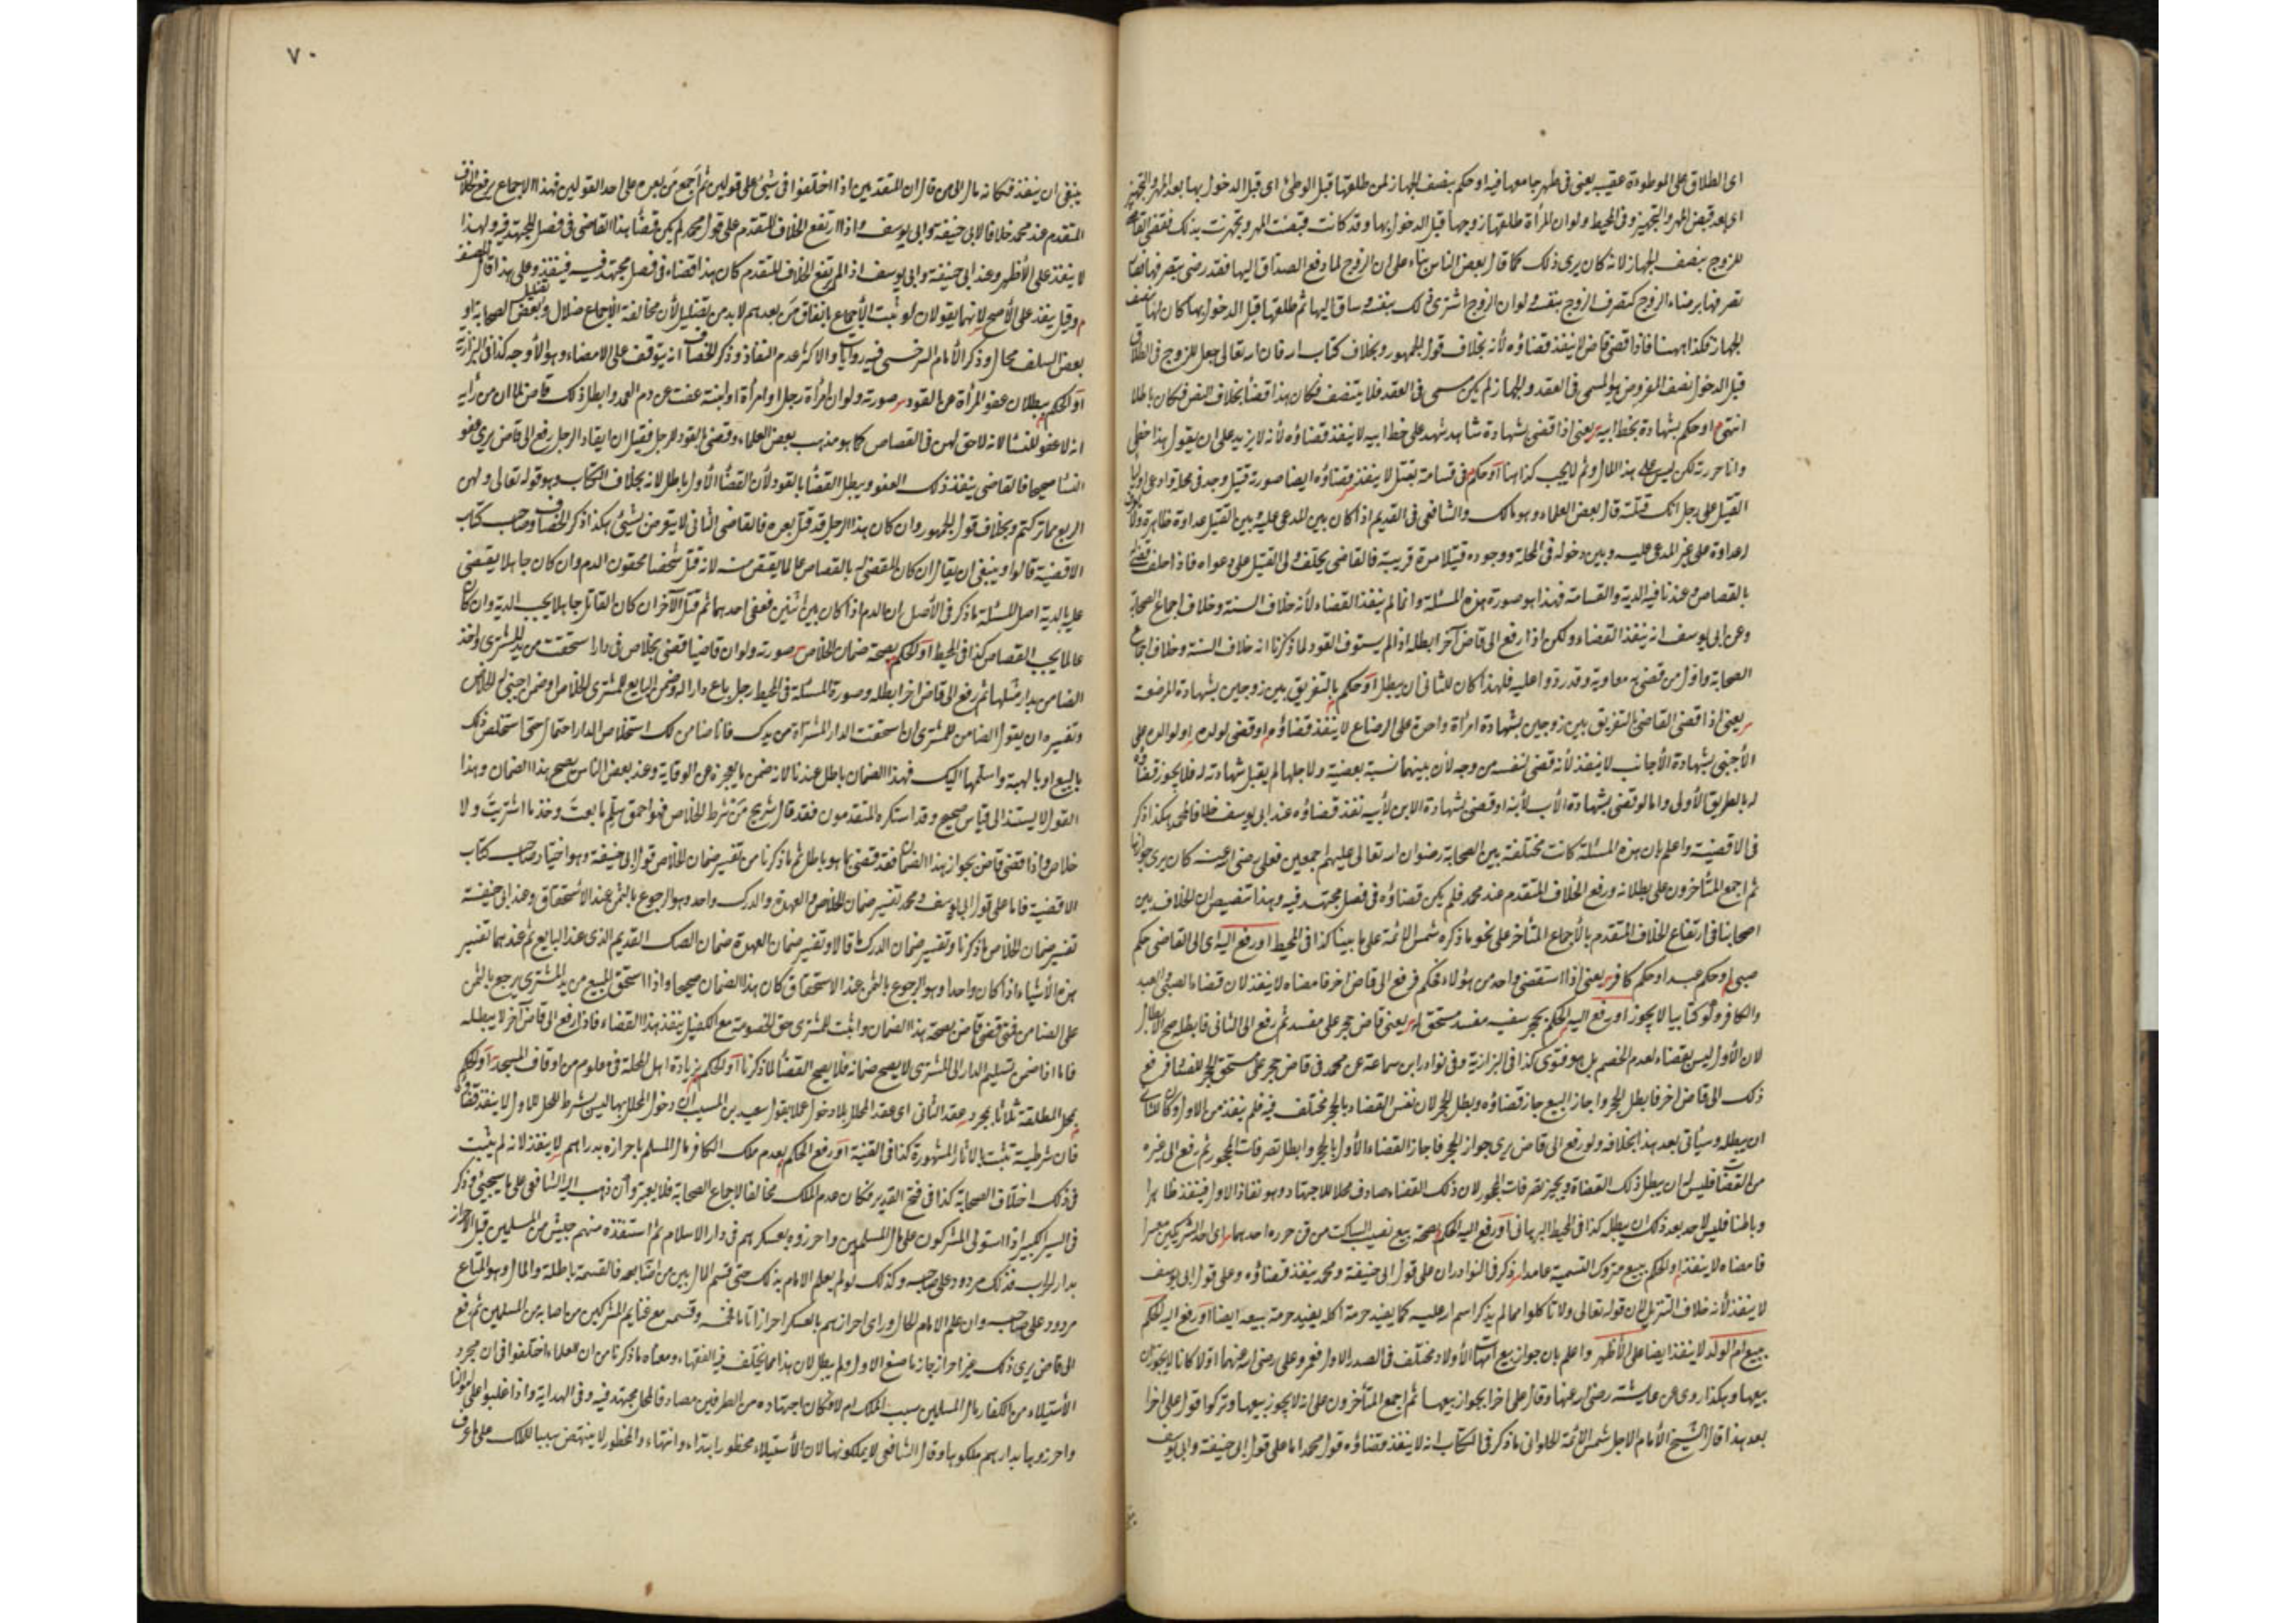 اى الطلاق على الموطوءة عقيبه يعنى فى طهر جامعها فيه او حكم بنصف الجهاز لمن طلقها قبل الوطئ اى قبل الدخول بها بعد المهر والتجهيز
اى بعد قبض المهر والتجهيز وفى المحيط ولو ان المرأة طلقها زوجها قبل الدخول بها وقد كانت قبضت المهر وتجهزت بذلك فقضى القاضى
للزوج بنصف الجهاز لانه كان يرى ذلك كما قال بعض الناس بناء على ان الزوج لما دفع الصداق اليها فقد رضى بتصرفها
تصرفها برضاء الزوج كتصرف الزوج بنفسه ولو ان الزوج اشترى ذلك بنفسه وساق اليها ثم طلقها قبل الدخول بها كان لها نصف
الجهاز فكذا ههنا فاذا قضى قاض لا ينفذ قضاؤه لأنه بخلاف قول الجمهور وبخلاف كتاب الله فان الله تعالى جعل للزوج فى الطلاق
قبل الدخول نصف المفروض هو المسمى فى العقد والجهاز لم يكن مسمى فى العقد فلا يتنصف فكان هذا قضاء بخلاف النص فكان باطلا
انتهى او حكم بشهادة بخط ابيه يعنى اذا قضى بشهادة شاهد شهد على خط ابيه لا ينفذ قضاؤه لأنه لا يزيد على ان يقول هذا خطى
وانا حررته لكن ليس على هذا المال وثم لا يجب كذا هنا او حكم فى قسامة بقتل لا ينفذ قضاؤه ايضا صورته قتيل وجد فى محلة وادعى اولياء
القتيل على رجل انك قتلته قال بعض العلماء وهو مالك والشافعى فى القديم اذا كان بين المدعى عليه وبين القتيل عداوة ظاهرة ولا
عداوة على غير المدعى عليه وبين دخوله فى المحلة ووجوده قتيلا مدة قريبة فالقاضى يحلف ولى القتيل على دعواه فاذا حلف قضى
بالقصاص وعندنا فيه الدية والقسامة فهذا هو صورة هذه المسئلة وانما لم ينفذ القضاء لأنه خلاف السنة وخلاف اجماع الصحابة
وعن ابى يوسف انه ينفذ القضاء ولكن اذا رفع الى قاض آخر ابطله اذا لم يستوف القود لما ذكرنا انه خلاف السنة وخلاف اجماع
الصحابة واول من قضى به معاوية وقد ردوا عليه فلهذا كان للثانى ان يبطل او حكم بالتفريق بين زوجين بشهادة المرضعة
يعنى اذا قضى القاضى بالتفريق بين زوجين بشهادة امرأة واحدة على الرضاع لا ينفذ قضاؤه او قضى لولده او لوالده على
الأجنبى بشهادة الأجانب لا ينفذ لأنه قضى لنفسه من وجه لان بينهما نسبة بعضية ولاجلها لم يقبل شهادته له فلا يجوز قضاؤه
له بالطريق الأولى واما لو قضى بشهادة الأب لأبنه او قضى بشهادة الابن لأبيه نفذ قضاؤه عند ابى يوسف خلافا لمحمد هكذا ذكر
فى الاقضية واعلم بان هذه المسئلة كانت مختلفة بين الصحابة رضوان الله تعالى عليهم اجمعين فعلى رضى الله عنه كان يرى جوازها
ثم اجمع المتأخرون على بطلانه ورفع الخلاف المتقدم عند محمد فلم يكن قضاؤه فى فصل مجتهد فيه وهذا تنصيص ان الخلاف بين
اصحابنا فى ارتفاع الخلاف المتقدم بالأجماع المتأخر على نحو ما ذكره شمس الائمة على ما بينا كذا فى المحيط او رفع اليه اى الى القاضى حكم
صبى او حكم عبد او حكم كافر يعنى اذا استقضى واحد من هؤلاء فحكم فرفع الى قاض اخر فامضاه لا ينفذ لان قضاء الصبى والعبد
والكافر ولو كتابيا لا يجوز او رفع اليه الحكم بحجر سفيه مفسد مستحق له يعنى قاض حجر على مفسد ثم رفع الى الثانى فابطله صح الابطال
لان الأول ليس بقضاء لعدم الخصم بل هو فتوى كذا فى البزازية وفى نوادر ابن سماعة عن محمد فى قاض حجر على مستحق الحجر للفساد فرفع
ذلك الى قاض اخر فابطل الحجر واجاز البيع جاز قضاؤه وبطل الحجر لان نفس القضاء بالحجر مختلف فيه فلم ينفذ من الاول وكان للثانى
ان يبطله وسيأتى بعد هذا بخلافه ولو رفع الى قاض يرى جواز الحجر فاجاز القضاء الأول بالحجر وابطل تصرفات المحجور ثم رفع الى غيره
من القضاة فليس له ان يبطل ذلك القضاء ويجيز تصرفات المحجور لان ذلك القضاء صادف محلا للاجتهاد وهو نفاذ الاول فينفذ ظاهرا
وباطنا فليس لاحد بعد ذلك ان يبطله كذا فى المحيط البرهانى او رفع اليه الحكم بصحة بيع نصيب الساكت من قن حرره احدهما اى احد الشريكين معسرا
فامضاه لا ينفذ او الحكم ببيع متروك التسمية عامدا ذكر فى النوادر ان على قول ابى حنيفة ومحمد ينفذ قضاؤه وعلى قول ابى يوسف
لا ينفذ لأنه خلاف التنزيل لان قوله تعالى ولا تأكلوا مما لم يذكر اسم الله عليه كما يفيد حرمة اكله يفيد حرمة بيعه ايضا او رفع اليه الحكم
ببيع ام الولد لا ينفذ ايضا على الأظهر واعلم بان جواز بيع امهات الأولاد مختلف فى الصدر الاول فعمر وعلى رضى الله عنهما اولا كانا لا يجوزان
بيعها وهكذا روى عن عائشة رضى الله عنها وقال على اخرا بجواز بيعها ثم اجمع المتأخرون على انه لا يجوز بيعها وتركوا قول على اخرا
بعد هذا قال الشيخ الأمام الاجل شمس الائمة الحلوانى ما ذكر فى الكتاب انه لا ينفذ قضاؤه قول محمد اما على قول ابى حنيفة وابى يوسف
٧٠
ينبغى ان ينفذ فكانه مال الى من قال ان المتقدمين اذا اختلفوا فى شئ على قولين ثم أجمع من بعدهم على احد القولين فهذا الاجماع يرفع الخلاف
المتقدم عند محمد خلافا لابى حنيفة وابى يوسف واذا ارتفع الخلاف المتقدم على قول محمد لم يكن قضاء هذا القاضى فى فصل المجتهد فيه ولهذا
لا ينفذ على الأظهر وعند ابى حنيفة وابى يوسف اذا لم يرتفع الخلاف المتقدم كان هذا قضاء فى فصل مجتهد فيه فينفذ وعلى هذا قال المصنف
وقيل ينفذ على الأصح لانهما يقولان لو ثبت الأجماع باتفاق من بعدهم لا بد من تضليل لأن مخالفة الأجماع ضلال وتضليل بعض الصحابة او
بعض السلف محال وذكر الأمام السرخسى فيه روايات والاكثر عدم النفاذ وذكر الخصاف انه يتوقف على الامضاء وهو الأوجه كذا فى البزازية
او الحكم ببطلان عفو المرأة عن القود صورته ولو ان امرأة رجل او امرأة او ابنته عفت عن دم العمد وابطل ذلك قاض لما ان من رأيه
انه لا عفو للنساء لانه لا حق لهن فى القصاص كما هو مذهب بعض العلماء وقضى بالقود للرجل فقبل ان يقاد الرجل رفع الى قاض يرى عفو
النساء صحيحا فالقاضى ينفذ ذلك العفو ويبطل القضاء بالقود لأن القضاء الأول باطل لانه بخلاف الكتاب وهو قوله تعالى ولهن
الربع مما تركتم وبخلاف قول الجمهور وان كان هذا الرجل قد قتل بعده فالقاضى الثانى لا يتعرض بشئ هكذا ذكر الخصاف وصاحب كتاب
الاقضية قالوا وينبغى ان يقال ان كان المقضى له بالقصاص عالما يقتص منه لانه قتل شخصا محقون الدم وان كان جاهلا يقضى
عليه بالدية اصل المسئلة ما ذكر فى الأصل ان الدم اذا كان بين اثنين فعفى احدهما ثم قتل الآخر ان كان القاتل جاهلا يجب الدية وان كان
عالما يجب القصاص كذا فى المحيط او الحكم بصحة ضمان الخلاص صورته ولو ان قاضيا قضى بخلاص فى دار استحقت من يد المشترى واخذ
الضامن بدار مثلها ثم رفع الى قاض اخر ابطله وصورة المسئلة فى المحيط رجل باع داراله وضمن البايع للمشترى الخلاص او ضمن اجنبى له الخلاص
وتفسيره ان يقول الضامن للمشترى ان استحقت الدار المشتراة من يدك فانا ضامن لك استخلاص الدار احتمال حتى استخلص ذلك
بالبيع او بالهبة واسلمها اليك فهذا الضمان باطل عندنا لانه ضمن بما يعجزه عن الوفاية وعند بعض الناس يصح هذا الضمان وهذا
القول لا يستند الى قياس صحيح وقد استنكره المتقدمون فقد قال شريح من شرط الخلاص فهو احمق سلم ما بعت وخذ ما اشتريت ولا
خلاص واذا قضى قاض بجواز هذا الضمان فقد قضى بما هو باطل ثم ما ذكرنا من تفسير ضمان الخلاص قول ابى حنيفة وهو اختيار صاحب كتاب
الاقضية فاما على قول ابى يوسف ومحمد تفسير ضمان الخلاص والعهدة والدرك واحد وهو الرجوع بالثمن عند الأستحقاق وعند ابى حنيفة
تفسير ضمان الخلاص ما ذكرنا وتفسير ضمان الدرك ما قالا وتفسير ضمان العهدة ضمان الصك القديم الذى عند البايع ثم عندهما تفسير
هذه الأشياء اذا كان واحدا وهو الرجوع بالثمن عند الاستحقاق كان هذا الضمان صحيحا واذا استحق المبيع من يد المشترى يرجع بالثمن
على الضامن فمتى قضى قاض بصحة هذا الضمان واثبت للمشترى حق الخصومة مع الكفيل ينفذ هذا القضاء فاذا رفع الى قاض آخر لا يبطله
فاما اذا ضمن تسليم الدار الى المشترى لا يصح ضمانه فلا يصح القضاء لما ذكرنا او الحكم بزيادة اهل المحلة فى معلوم من اوقاف المسجد او الحكم
بحل المطلقة ثلاثا بمجرد عقد الثانى اى عقد المحلل بلا دخول عملا بقول سعيد بن المسيب ان دخول المحلل بها ليس بشرط للحل للاول لا ينفذ قضاؤه
فان شرطيته تثبت بالاثار المشهورة كذا فى القنية او رفع الحكم بعدم ملك الكافر مال المسلم باحرازه بدراهم لا ينفذ لانه لم يثبت
فى ذلك اختلاف الصحابة كذا فى فتح القدير فكان عدم الملك مخالفا لاجماع الصحابة فلا يعتبر وان ذهب اليه الشافعى على ما سيجئ وذكر
فى السير الكبير اذا استولى المشركون على مال المسلمين واحرزوه بعسكرهم فى دار الاسلام ثم استنقذه منهم جيش من المسلمين قبل الاحراز
بدار الحرب فذلك مردود على صاحبه وكذلك لو لم يعلم الامام بذلك حتى قسم المال بين من اصابه فالقسمة باطلة والمال وهو المتاع
مردود على صاحبه وان علم الامام الحال وراى احرازهم بالعسكر احرازا تاما فخمسه وقسمه مع غنايم المشركين من اصابه من المسلمين ثم رفع
الى قاض يرى ذلك غير احراز جاز ما صنع الاول ولم يبطل لان هذا مما يختلف فيه الفقهاء ومعناه ما ذكرنا من ان العلماء اختلفوا فى ان مجرد
الأستيلاء من الكفار بمال المسلمين سبب الملك ام لا فكان اجتهاده من الطرفين مصادفا لمحل مجتهد فيه وفى الهداية واذا غلبوا على اموالنا
واحرزوها بدارهم ملكوها وقال الشافعى لا يملكونها لان الأستيلاء محظور ابتداء وانتهاء والمحظور لا ينتهض سببا للملك على ما عرف